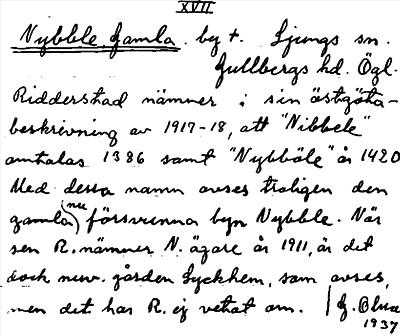 XVII
Nybble, Gamla. by †. Ljungs sn.
Gullbergs hd. Ögl.
Ridderstad nämner i sin östgöta-
beskrivning av 1917-18, att "Nibbele"
omtalas 1386 samt "Nybbäle" år 1420
Med dessa namn avses troligen den
gamla (nu) försvunna byn Nybble. När
sen R. nämner N. ägare år 1911, är det
dock nuv. gården Lyckhem, som avses,
men det har R. ej vetat om. / G. Olsa
1937